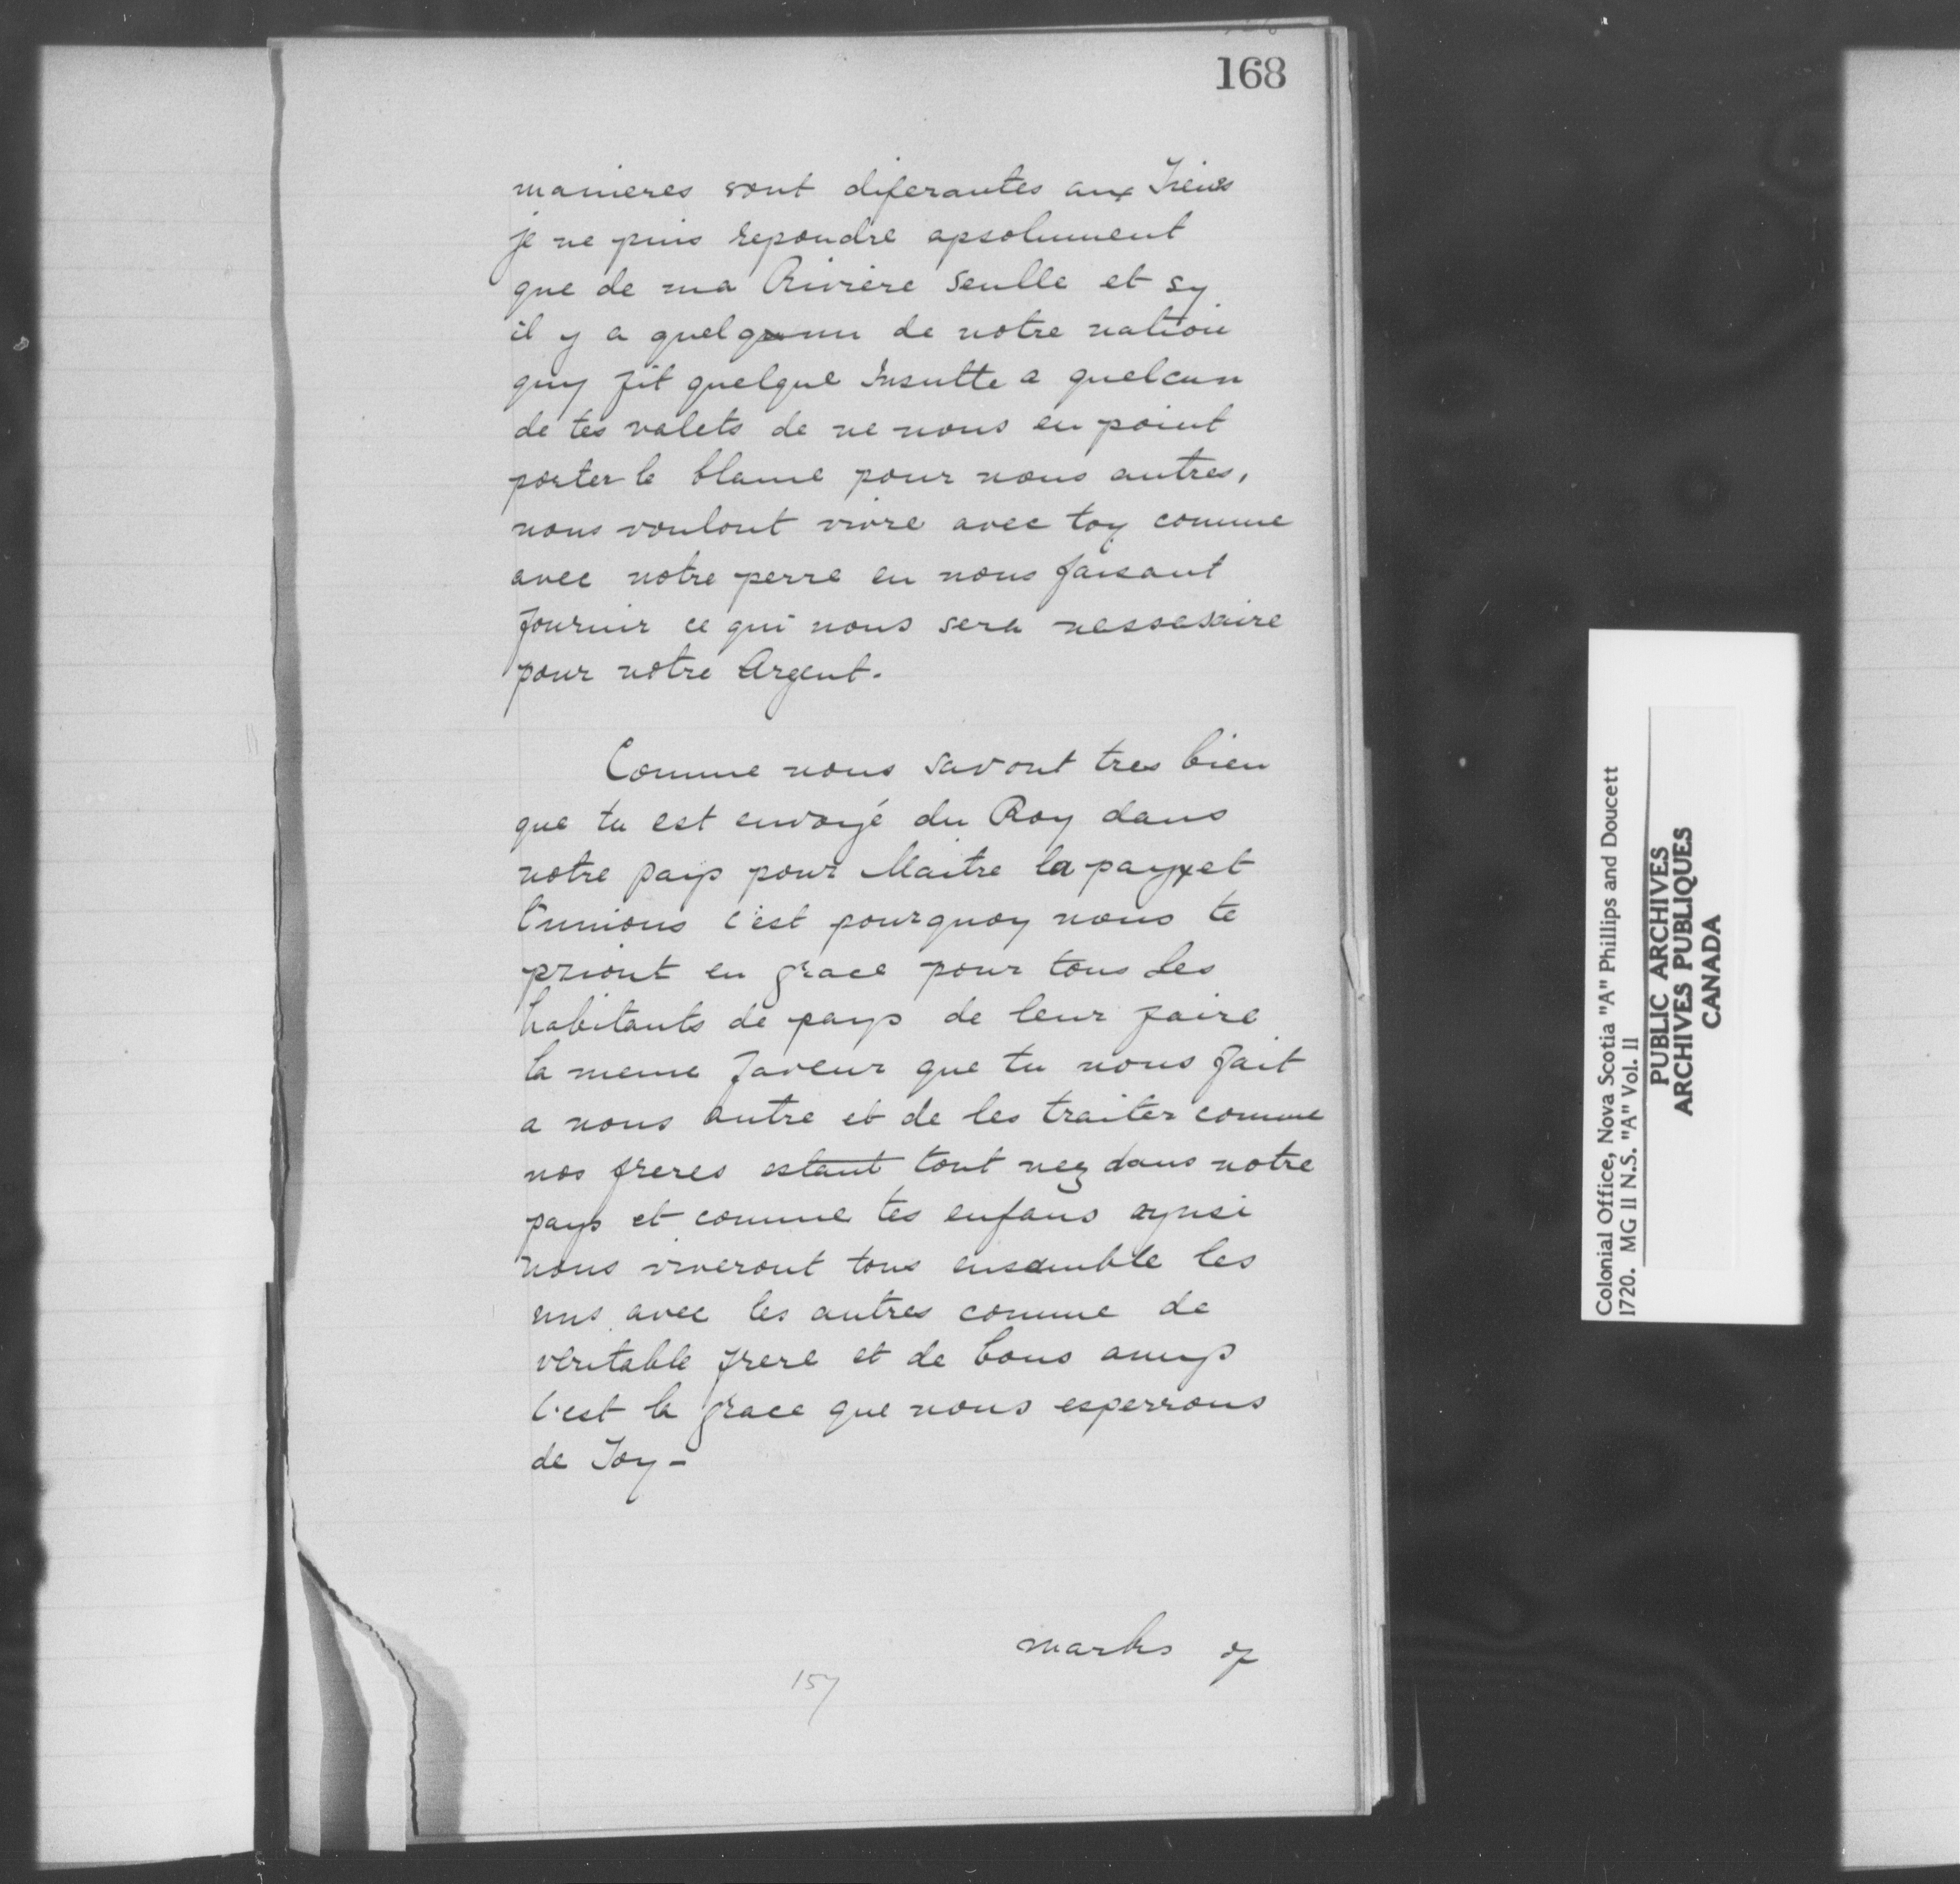 168
manieres sont diferantes aux Tienes
je ne puis repondre apsolument
que de ma Riviere seulle et sy
il y a quelqunun de notre nation
quy fit quelque Insultte a quelcun
de tes valets de ne nous en point
porter le blame pour nous autres,
nous voulont vivre avec toy comme
avec notre perre en nous faisant
fournir ce qui nous sera nessesaire
pour notre Argent.
Comme nous savont tres bien
que tu est envoyé du Roy dans
notre pays pour Maitre la payx et
l'unions c'est pourquoy nous te
priont en grace pour tous les
habitants de pays de leur faire
la meme faveur que tu nous fait
a nous autre et de les traiter comme
nos freres estant tout nez dans notre
pays et comme tes enfans aynsi
nous viveront tous ensemble les
uns avec les autres comme de
veritable frere et de bons amys
c'est la grace que nous esperrons
de Toy -
marks of
157
Colonial Office, Nova Scotia "A" Phillips and Doucett
1720. MG 11 N.S. "A" Vol. 11
PUBLIC ARCHIVES
ARCHIVES PUBLIQUES
CANADA